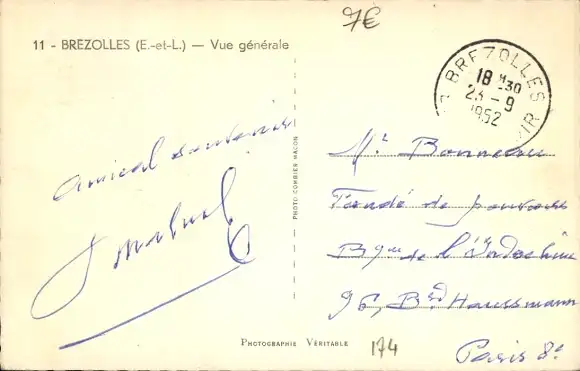 7€
11 - BREZOLLES (E.-et-L.) — Vue générale
BREZOLLES
18 H 30
23 - 9
1952
Amical souvenir
PHOTO COMBIER MACON
Mr Bonneau
Fondé de pouvoirs
Bque de l'Indochine
96, Bd Haussmann
Paris 8e
PHOTOGRAPHIE VÉRITABLE
174